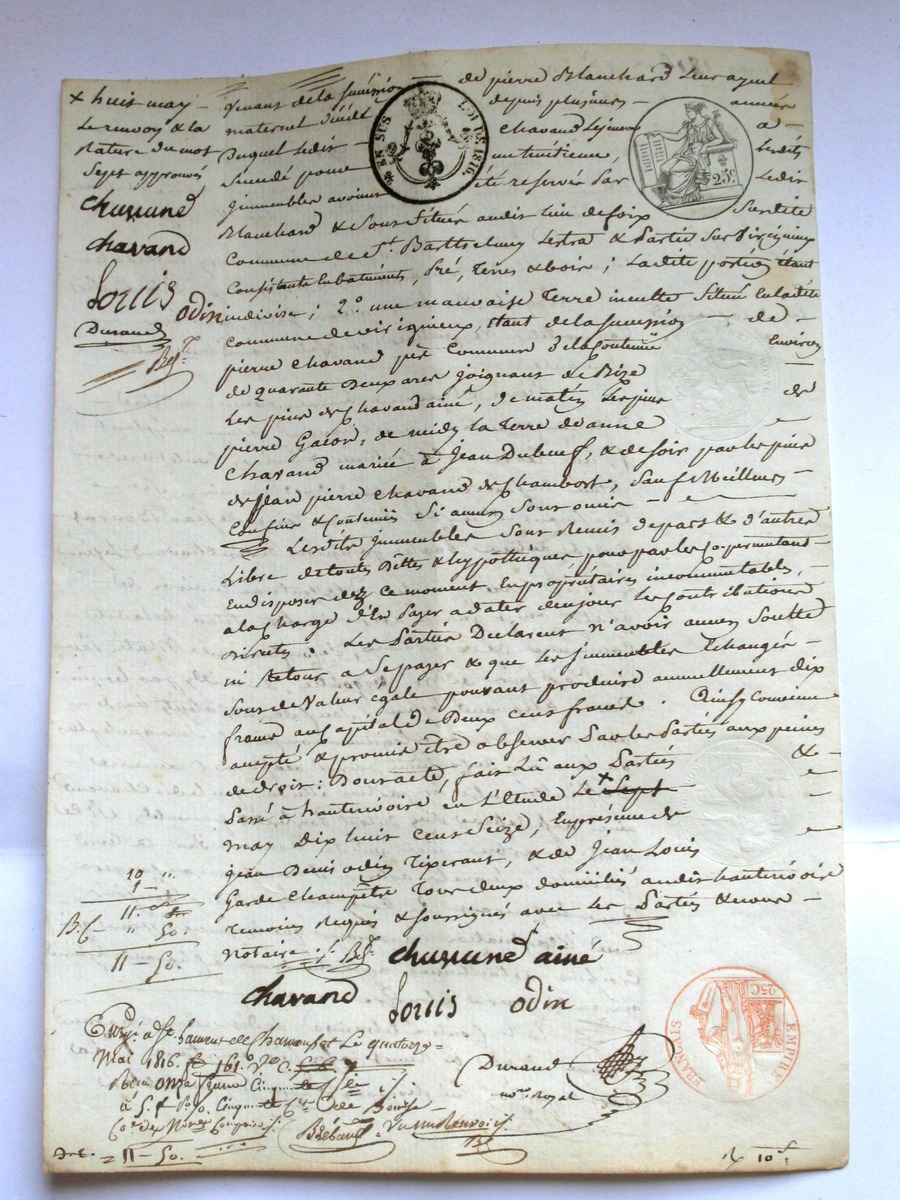 x huit may
Le renvoy & la
Rature du mot
Sept approuvés
chavand
chavand
Louis odin
Durand
venant de la succession de pierre Blanchard leur ayeul
maternel depuis plusieurs années
duquel ledit chavand le jeune a
lesdits
immeubles été reservée par ledit
Blanchard & sont situés audit lieu de foix Susdite
Commune de St. Barthelemy Lestra & Partie Sur Virigneux
Consistante en batiments, Pré, terres & bois ; Ladite portion étant
indivise ; 2o. une mauvaise Terre inculte située en ladite
Commune de virigneux, étant de la succession de
pierre chavand père commun de la Contenue Environ
de quarante Deux ares joignant de Bize
Les pins de chavand ainé, de matin les pins de
pierre Gacon, de midy la Terre de anne
Chavand mariée à Jean Dubeuf, & de soir par les pins
de Jean pierre chavand de chambost, Sauf Meilleurs
Confins & contenus si aucuns sont omis
Lesdits immeubles sont Remis de part & d'autre
Libre de toutes Dettes & hypothèques pour par les co-permutants
En disposer dez ce moment En propriétaires incommutables,
a la charge d'En Payer a dater de ce jour les contributions
directes. Les Parties Declarent n'avoir aucun Soulte
ni Retour a se payer & que les immeubles Echangés
Sont de Valeur égale pouvant produire annuellement dix
francs au Capital de Deux cent francs. Ainsy convenu
accepté & promis être observer Par les Parties aux peines
de droit : Dont acte, fait Lû aux Parties &
Passé à hauterivoire en L'Etude Le x Sept
may Dix huit cent Seize, En présence de
Jean Denis odin Tixerant, & de Jean Louis
Garde Champêtre Tous deux domiciliés audit hauterivoire
temoins Requis & soussignés avec les Parties & nous
notaire
chavand ainé
chavand Louis odin
Durand
nore. royal
10 "
1
11.
" 50.
11 - 50.
Enrgé. à St. Laurent de Chamousset Le quatorze
Mai 1816. fo 161 Vo C.
Reçu onze francs Cinquante
Vu un Renvoi
11 - 50.
10
EN SUS
L. DE 1816.
25c
EMPIRE FRANÇAIS
25C